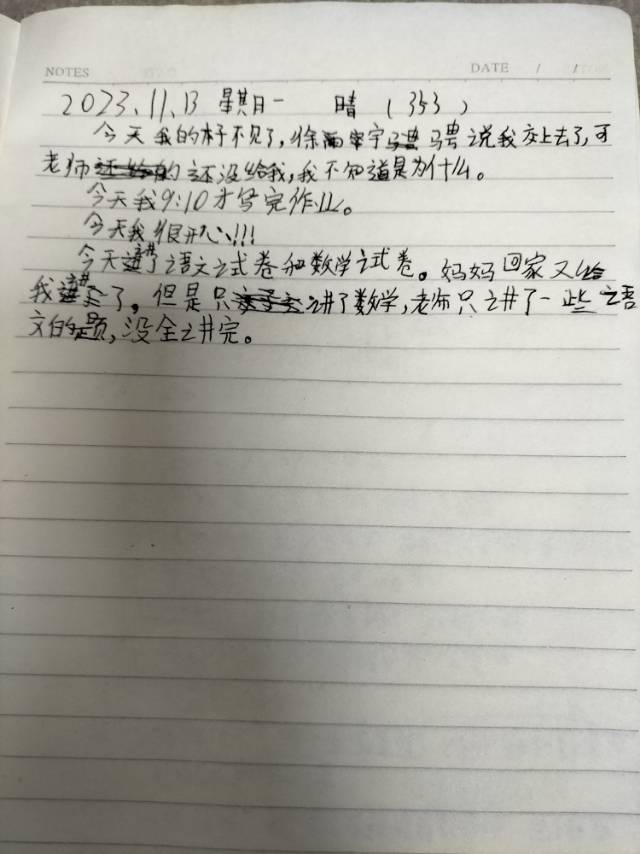 NOTES
DATE / /
2023.11.13 星期一 晴 (353)
今天我的本子不见了,徐雨宇骋说我交上去了,可
老师还没给我,我不知道是为什么。
今天我9:10才写完作业。
今天我很开心!!!
今天讲了语文试卷和数学试卷。妈妈回家又给
我讲了。但是只讲了数学,老师只讲了一些语
文的题,没全讲完。